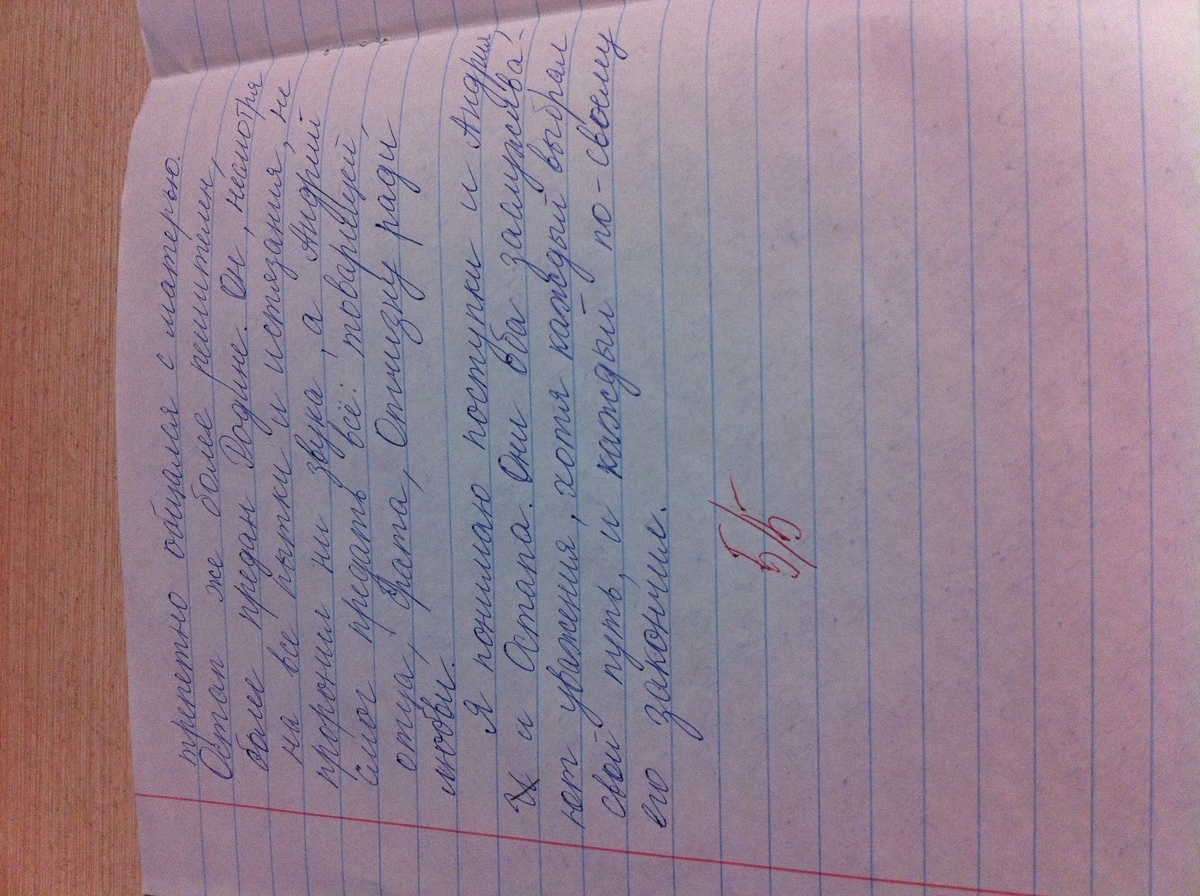 трепетно общался с матерью.
Остап же более решителен,
более предан Родине. Он, несмотря
на все пытки и истязания, не
проронил ни звука, а Андрий
смог предать всё: товарищей,
отца, брата, Отчизну ради
любви.
Я понимаю поступки и Андрия,
и Остапа. Они оба заслужива-
ют уважения, хотя каждый выбрал
свой путь, и каждый по-своему
его закончил.
5/5